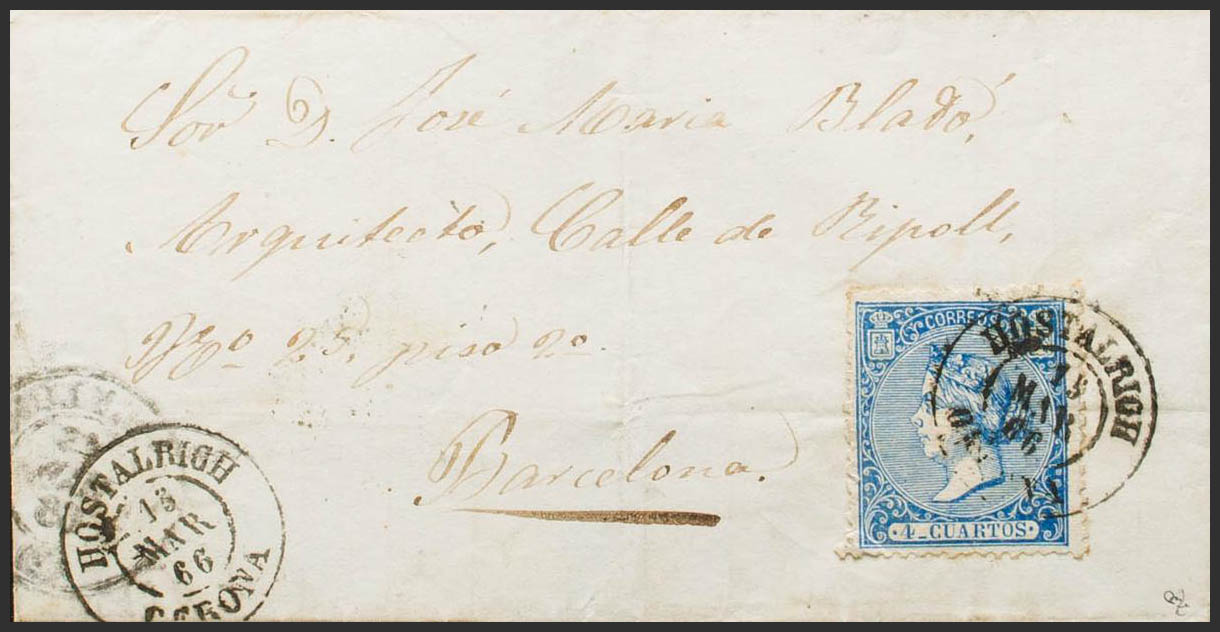 Sor D. José Maria Bladó,
Arquitecto, Calle de Ripoll,
Nro 25, piso 2o
Barcelona.
CORREOS
4 CUARTOS
HOSTALRICH
MAR
66
HOSTALRICH
13
MAR
66
GERONA